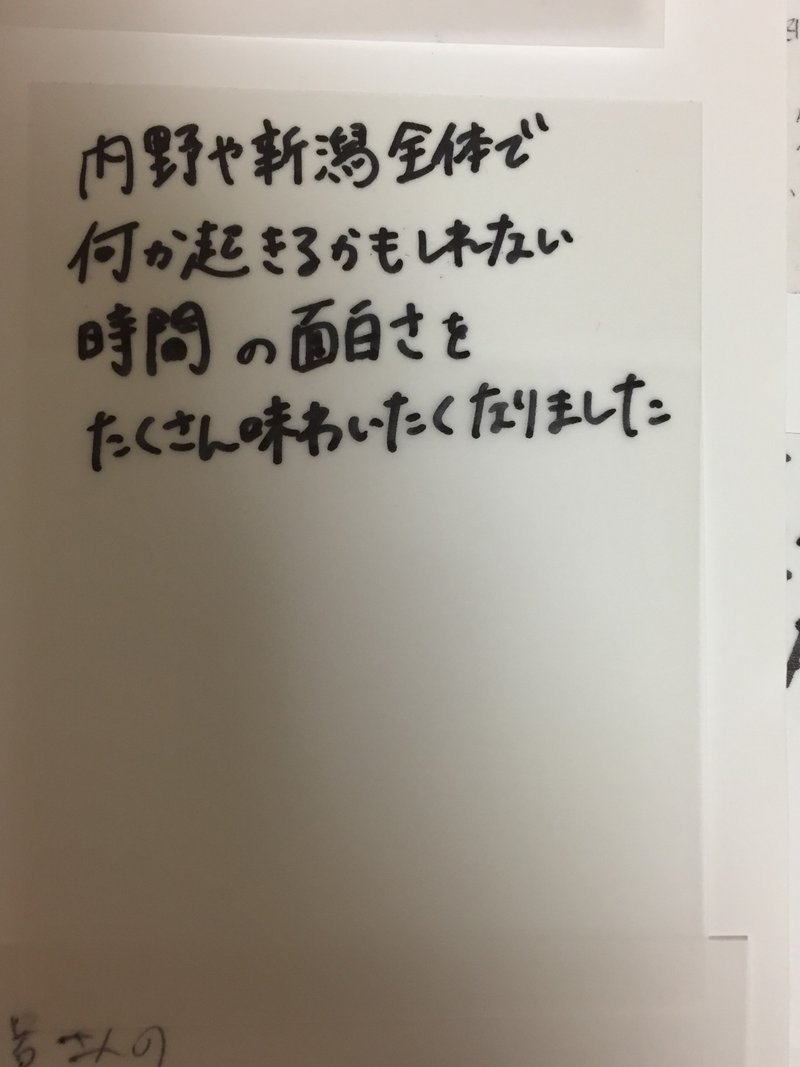 内野や新潟全体で
何か起きるかもしれない
時間の面白さを
たくさん味わいたくなりました
さんの